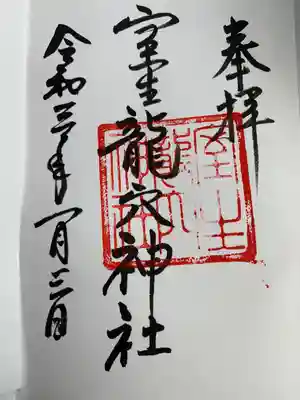 奉拝
室生龍穴神社
令和三年一月三日